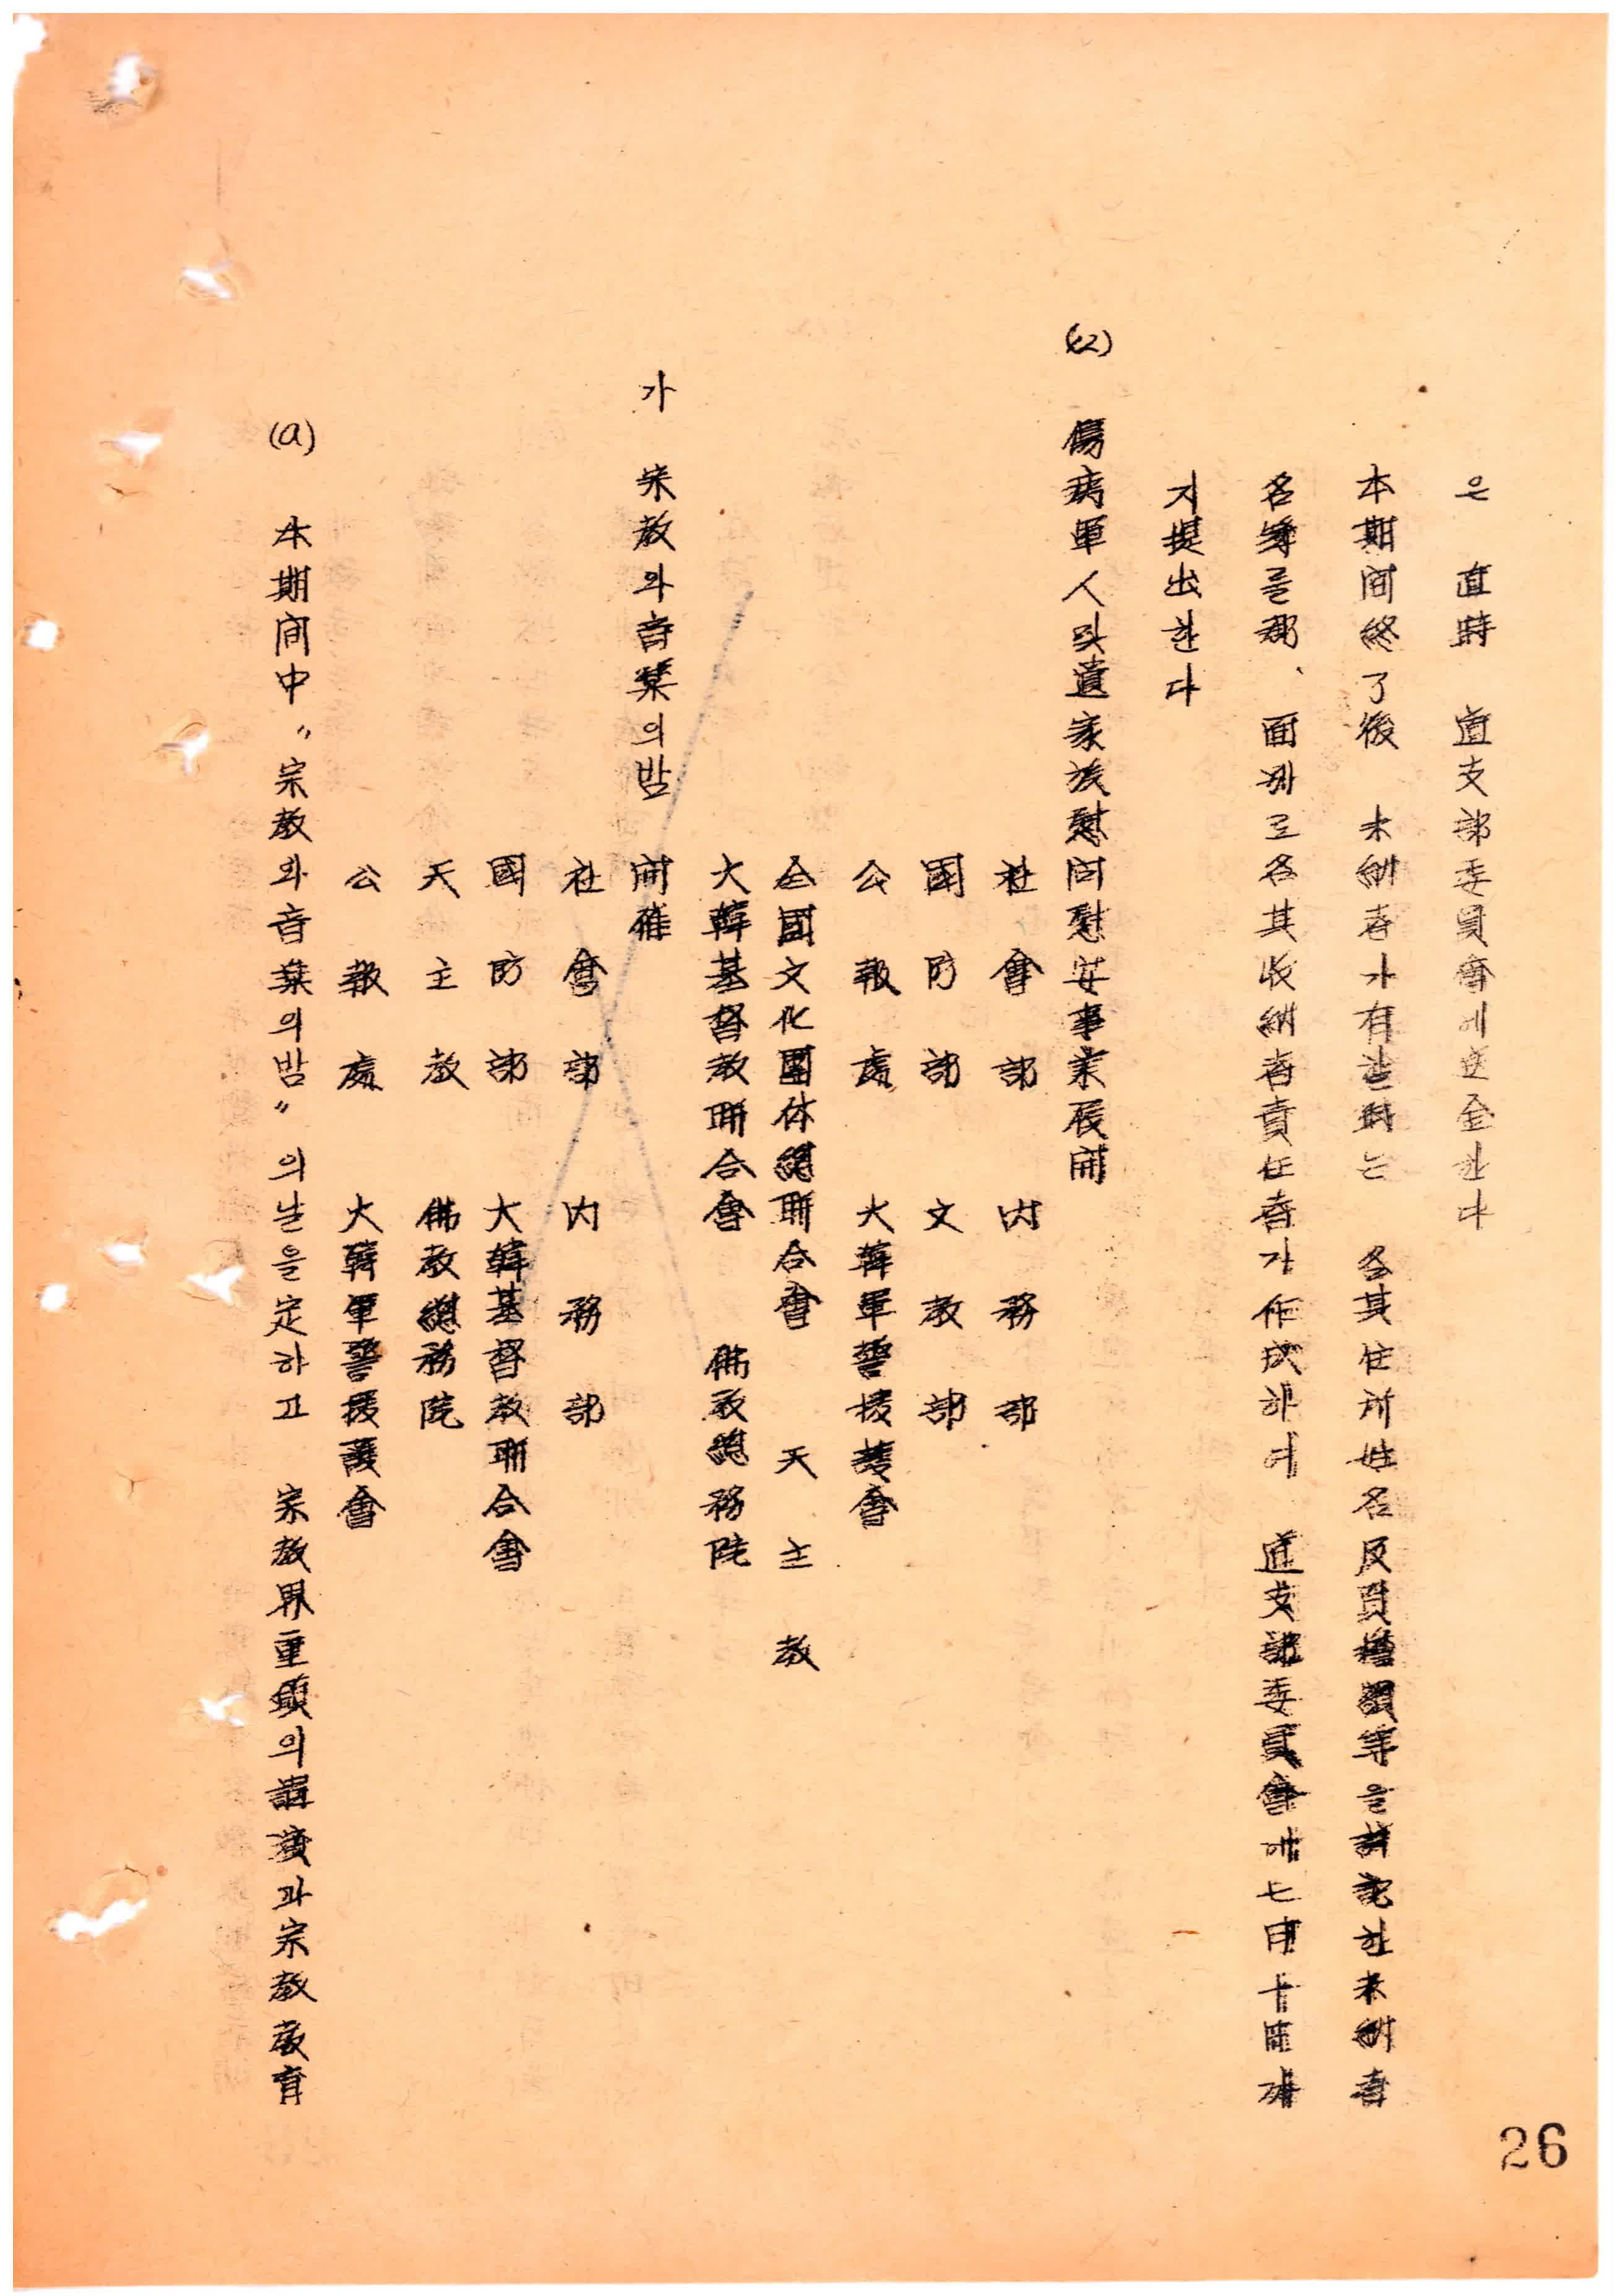 은 直時 道支部委員會에送金한다
本期间終了後 未納者가有할때는 各其住所姓名及負擔額等을詳記한未納者
名簿를郡、面別로各其收納者責任者가作成하여 道支部委員會에七月十日까
지提出한다
(2) 傷病軍人及遺家族慰问慰安事業展開
社會部 內務部
國防部 文教部
公報處 大韓軍警援護會
全國文化團体總聯合會 天主教
大韓基督教聯合會 佛教總務院
가 宗教와音樂의밤 開催
社會部 內務部
國防部 大韓基督教聯合會
天主教 佛教總務院
公報處 大韓軍警援護會
(a) 本期间中〃宗教와音樂의밤〃의날을定하고 宗教界重鎮의講演과宗教教育
26